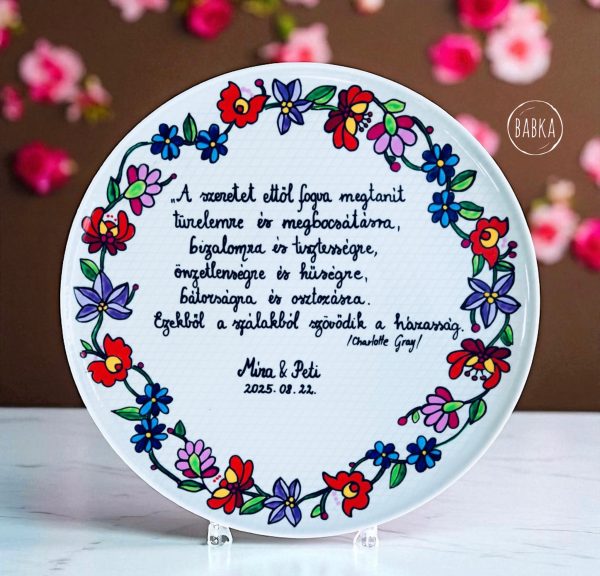 BABKA
„A szeretet ettől fogva megtanít
türelemre és megbocsátásra,
bizalomra és tisztességre,
önzetlenségre és hűségre,
bátorságra és osztozásra.
Ezekből a szálakból szövődik a házasság.
/Charlotte Gray/
Míra & Peti
2025.08.22.